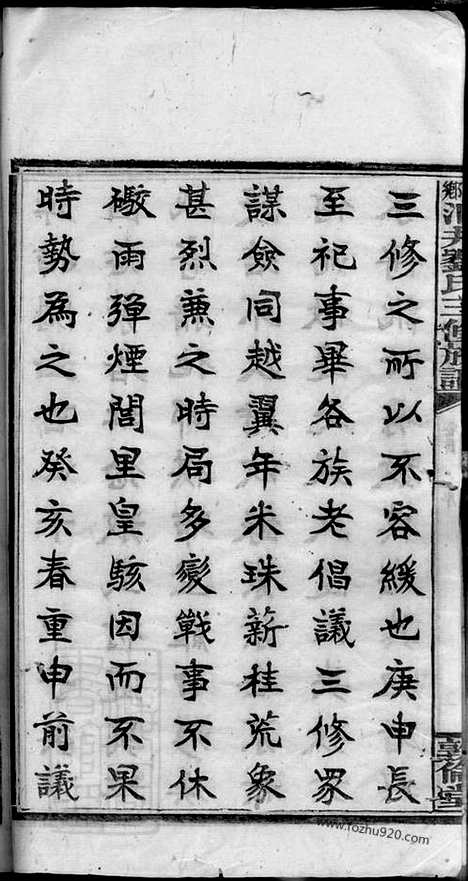 三修之所以不容緩也庚申長
至祀事畢各族老倡議三修眾
謀僉同越翼年米珠薪桂荒象
甚烈兼之時局多變戰事不休
礮雨彈煙閭里皇駭因而不果
時勢為之也癸亥春重申前議
劉氏三修族譜
敦倫堂
www.fozhu920.com